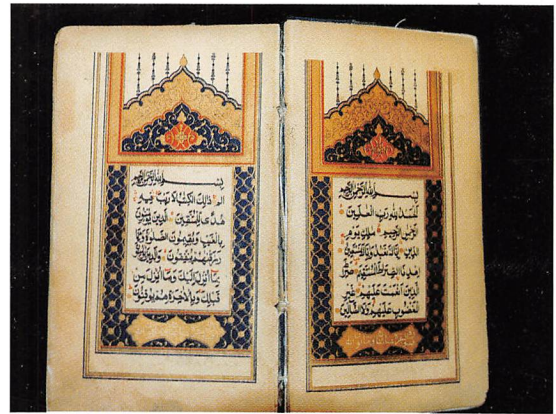 بسم الله الرحمن الرحيم
الحمد لله رب العلمين
الرحمن الرحيم ملك يوم
الدين اياك نعبد واياك نستعين
اهدنا الصراط المستقيم صراط
الذين انعمت عليهم غير
المغضوب عليهم ولا الضالين
بسم الله الرحمن الرحيم
الم ذلك الكتاب لا ريب فيه
هدى للمتقين الذين يؤمنون
بالغيب ويقيمون الصلوة ومما
رزقناهم ينفقون والذين يؤمنون
بما انزل اليك وما انزل من
قبلك وبالاخرة هم يوقنون